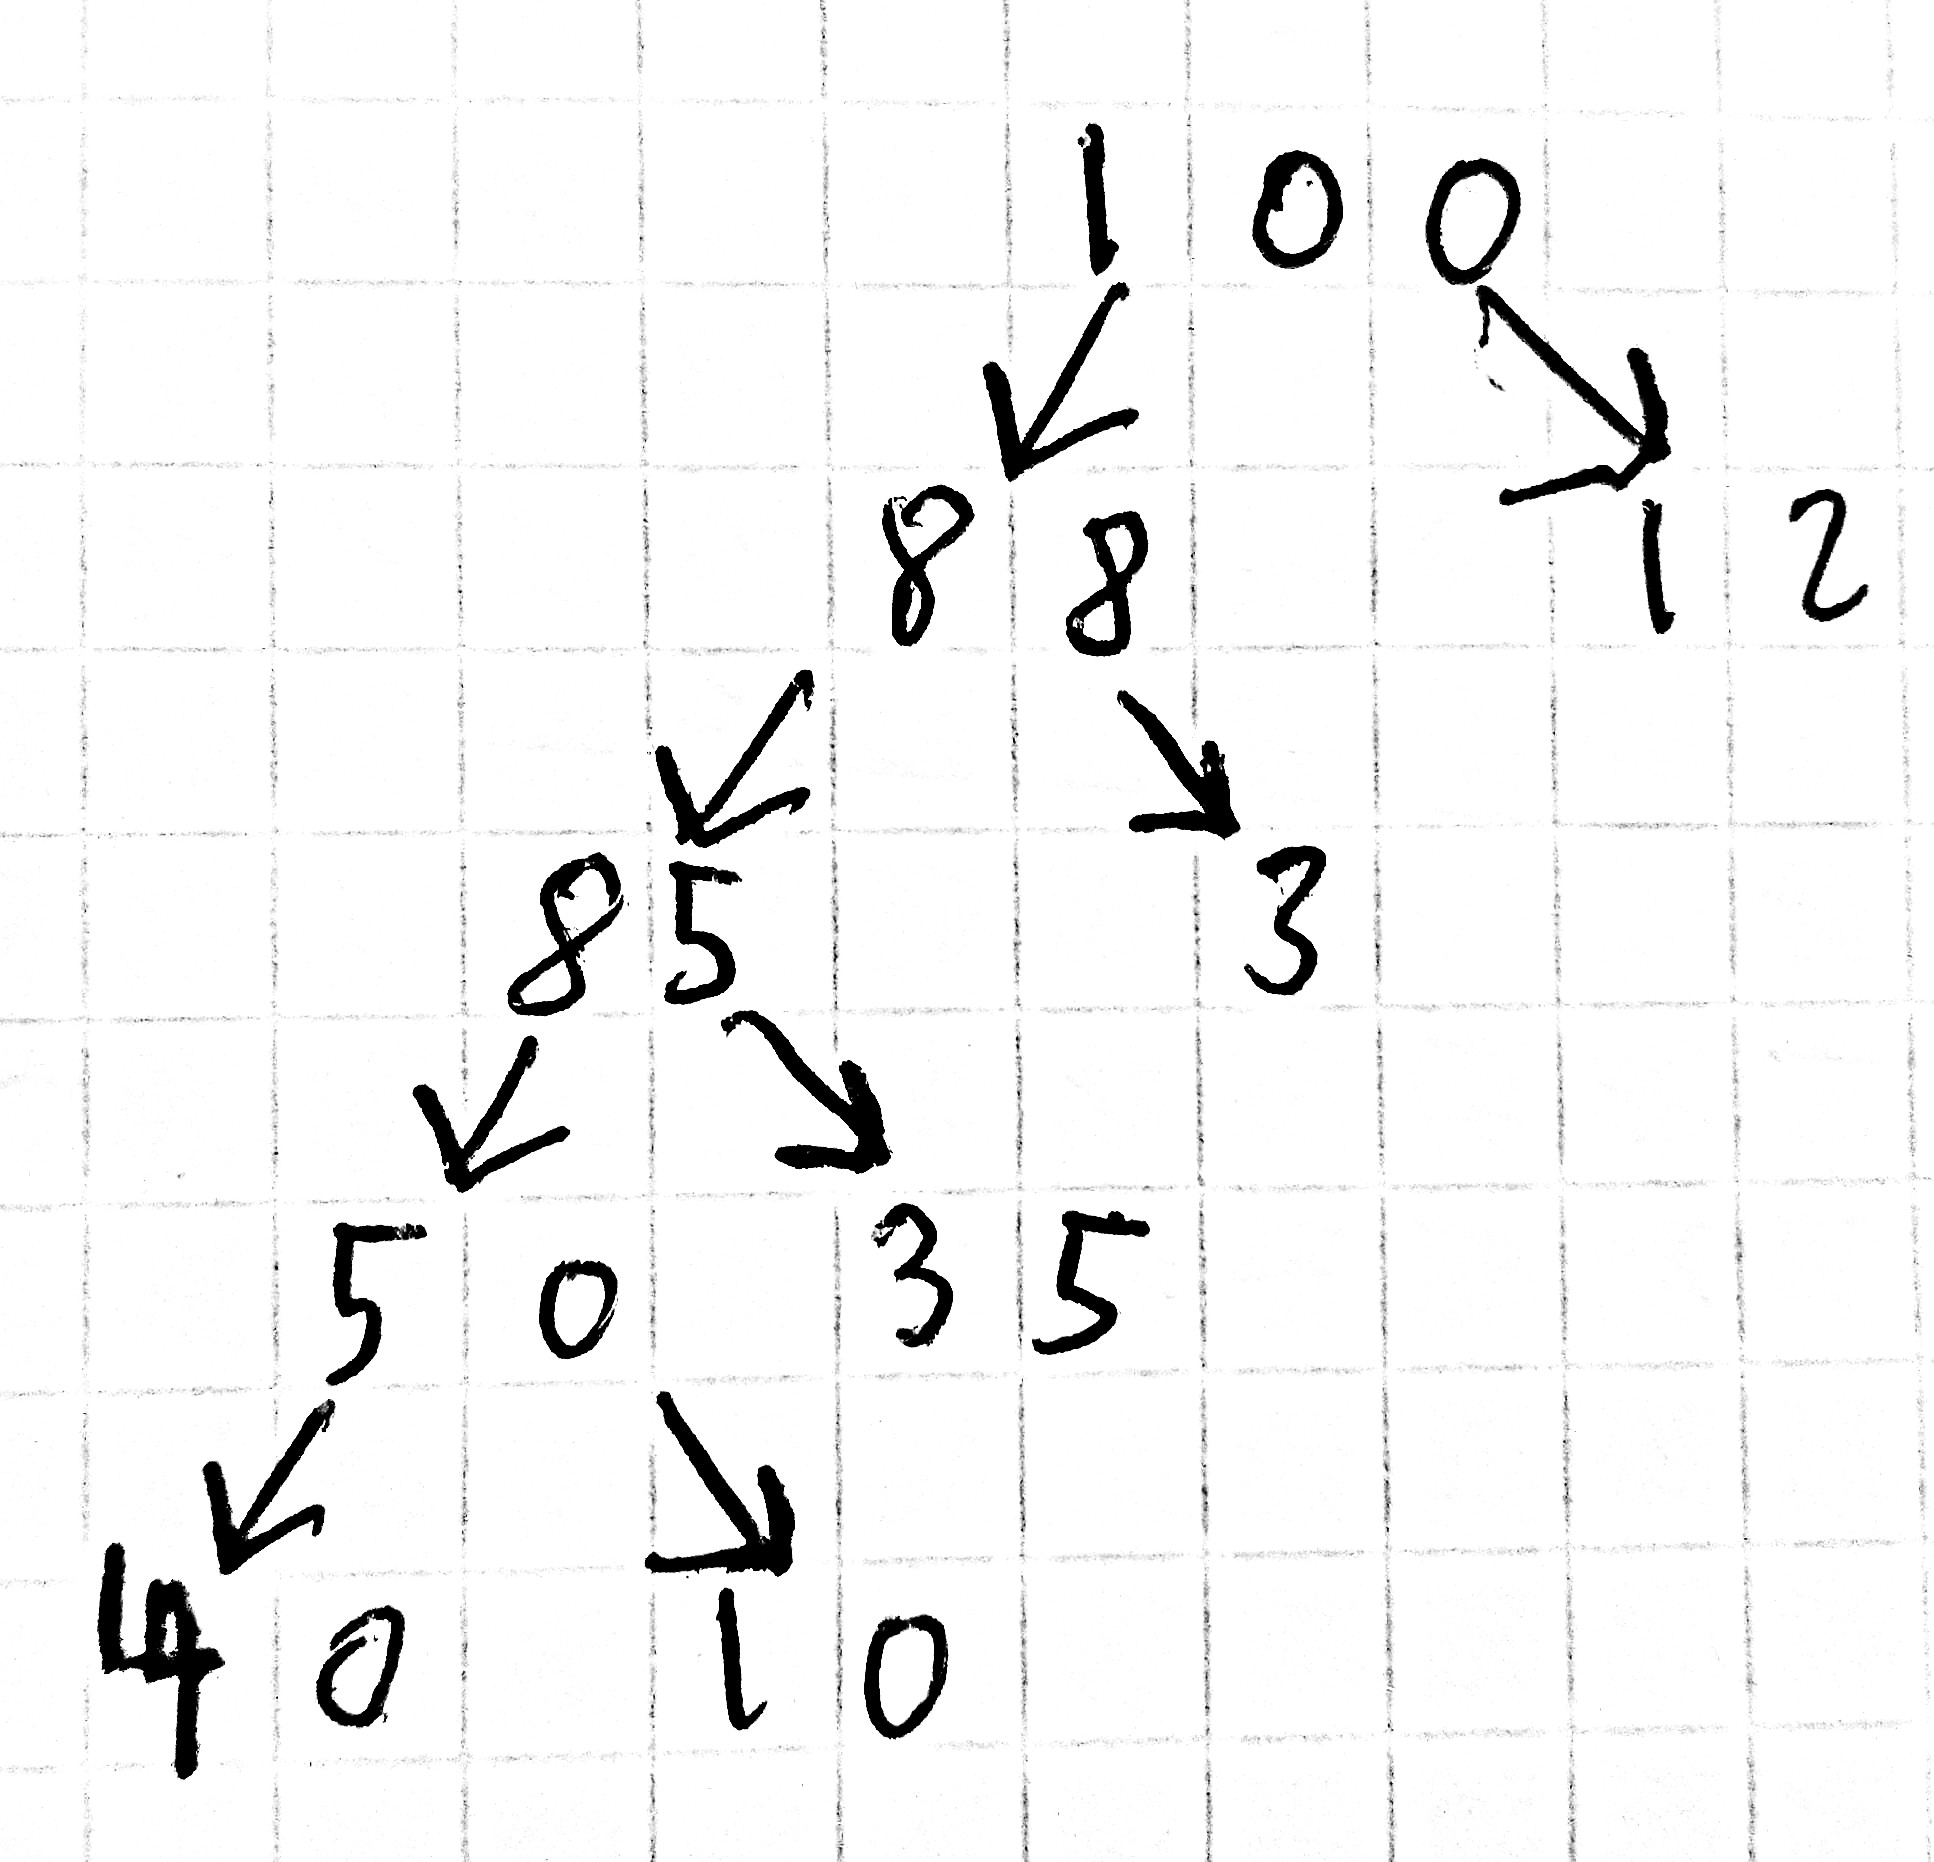 100
88 12
85 3
50 35
40 10